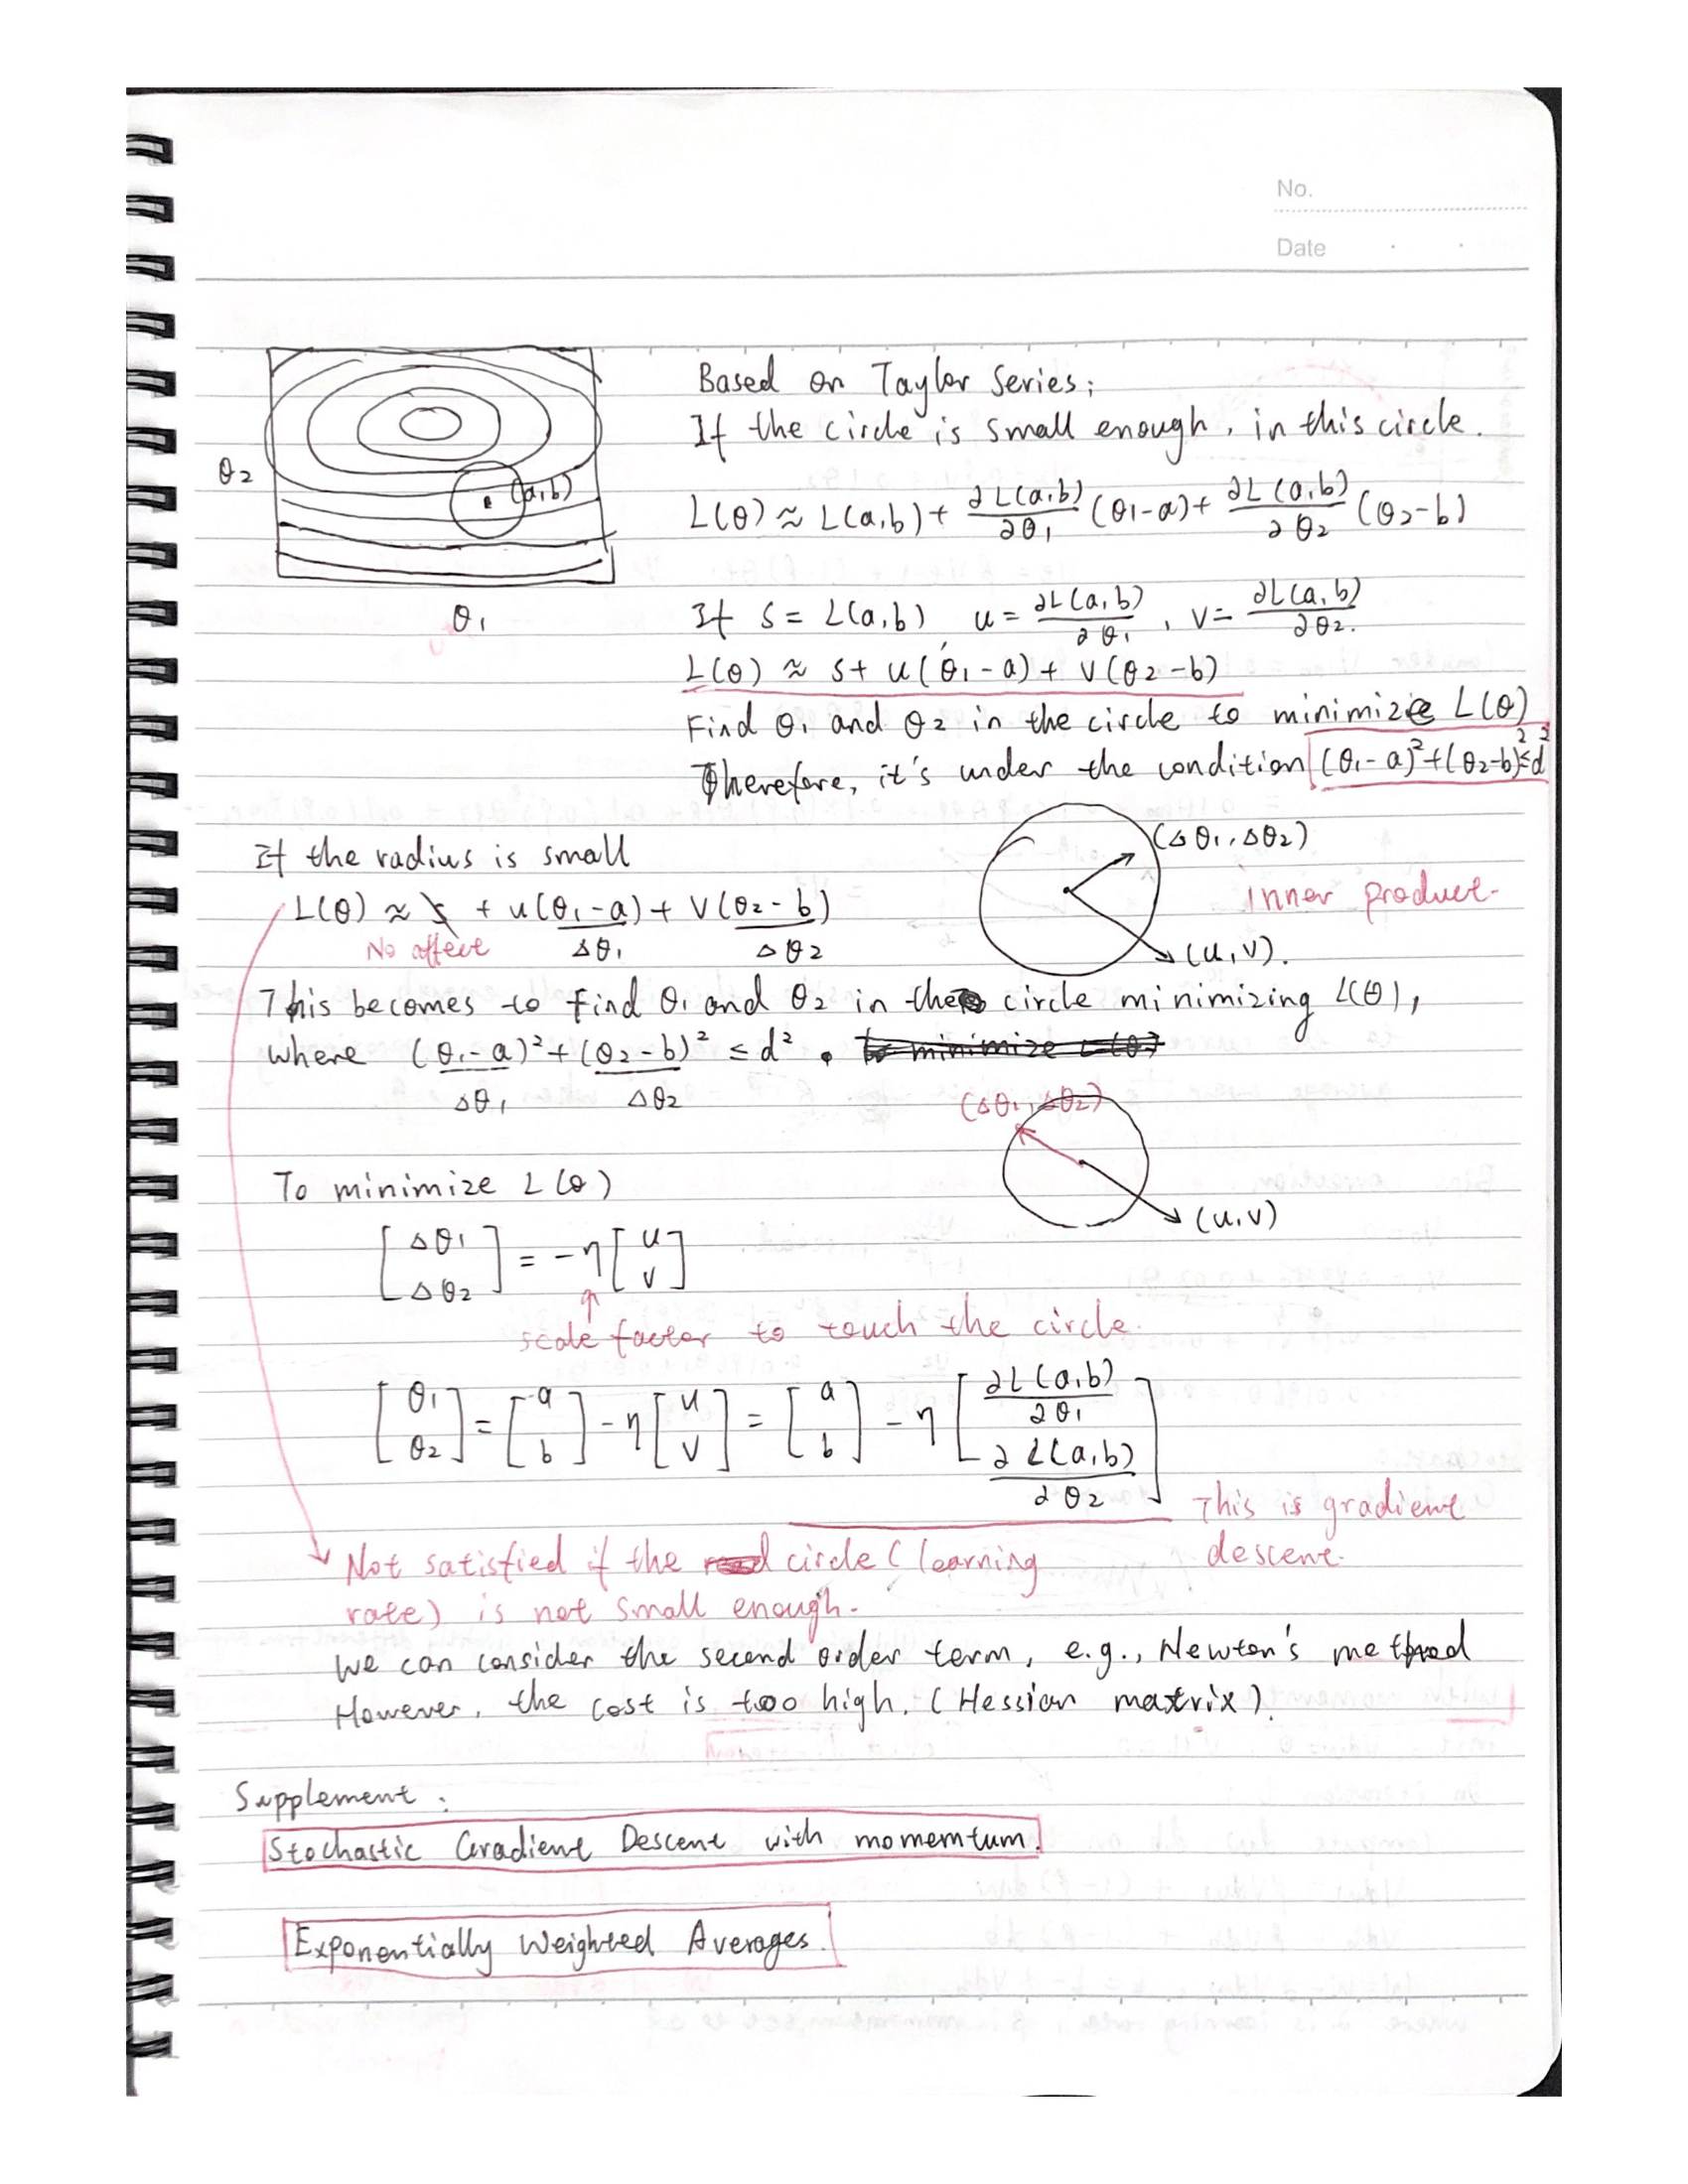 No.
Date
θ2
(a,b)
θ1
Based on Taylor Series:
If the circle is small enough, in this circle.
L(θ) ≈ L(a,b) + ∂L(a,b)/∂θ1 (θ1-a) + ∂L(a,b)/∂θ2 (θ2-b)
If s = L(a,b) u = ∂L(a,b)/∂θ1, v = ∂L(a,b)/∂θ2.
L(θ) ≈ s + u(θ1-a) + v(θ2-b)
Find θ1 and θ2 in the circle to minimize L(θ)
Therefore, it's under the condition (θ1-a)²+(θ2-b)²≤d²
(Δθ1, Δθ2)
inner product.
(u,v).
If the radius is small
L(θ) ≈ s + u(θ1-a) + v(θ2-b)
No affect Δθ1 Δθ2
This becomes to find θ1 and θ2 in the circle minimizing L(θ),
where (θ1-a)² + (θ2-b)² ≤ d². to minimize L(θ)
Δθ1 Δθ2
(Δθ1, Δθ2)
(u,v)
To minimize L(θ)
[Δθ1 Δθ2] = -η [u v]
scale factor to touch the circle.
[θ1 θ2] = [a b] - η [u v] = [a b] - η [∂L(a,b)/∂θ1 ∂L(a,b)/∂θ2]
This is gradient
descent.
Not satisfied if the circle (learning
rate) is not small enough.
We can consider the second order term, e.g., Newton's method
However, the cost is too high. (Hessian matrix).
Supplement:
Stochastic Gradient Descent with momemtum.
Exponentially Weighted Averages.